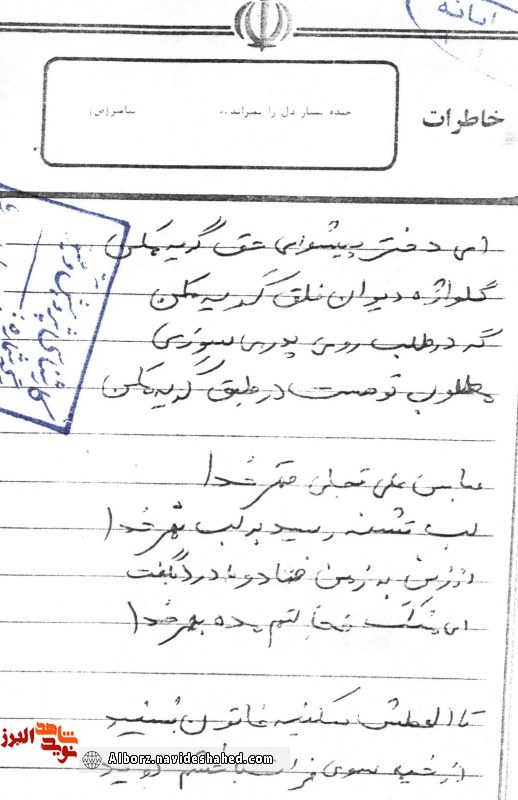 خاطرات
خنده بسیار دل را میراند..
پیامبر(ص)
ای دختر پیشوای حق گریه مکن
گلواژه دیوان خلق گریه مکن
گه در طلب روی پدر می سوزی
مطلوب تو هست در طبق گریه مکن
عباس علی تجلی قهر خدا
لب تشنه رسید بر لب نهر خدا
از زین به زمین فتاد و با درد گفت
ای مشک خجالتم مده بهر خدا
تا العطش سکینه خاتون بشنید
از خیمه سوی فرات با
شاهد
نوید
البرز
Alborz.navideshahed.com